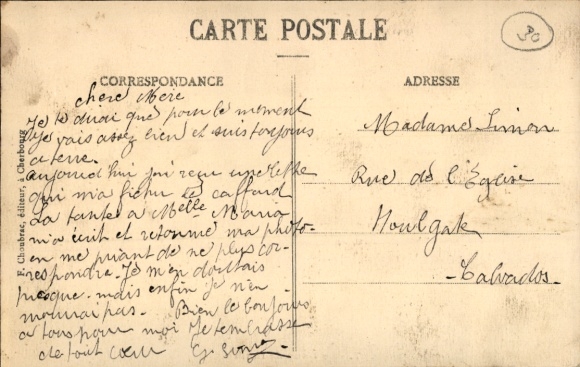 CARTE POSTALE
90
CORRESPONDANCE
chère Mère
Je te dirai que pour le moment
je vais assez bien et suis toujours
a terre.
aujourd'hui j'ai reçu une lettre
qui m'a fichu le caffard
La tante a Melle Maria
m'a écrit et retourné ma photo
en me priant de ne plus cor-
respondre. Je m'en doutais
presque. mais enfin je n'en
mourrai pas. Bien le bonjour
a tous pour moi Je t'embrasse
de tout cœur G. Simon
ADRESSE
Madame Simon
Rue de l'Eglise
Houlgate
Calvados
F. Chaubrac, éditeur, à Cherbourg